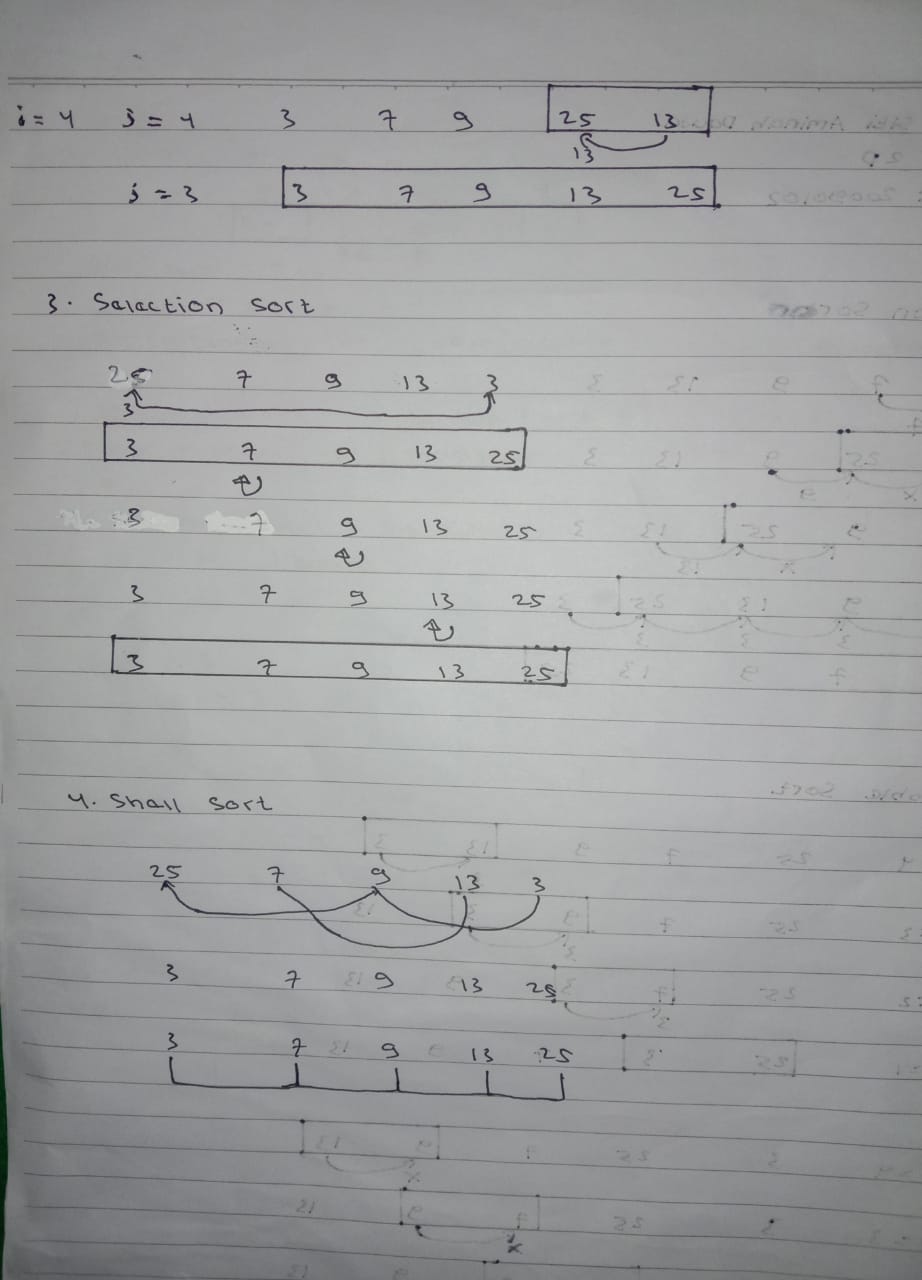 i = 4 j = 4 3 7 9 25 13
13
j = 3 3 7 9 13 25
3. Selection Sort
25 7 9 13 3
3
3 7 9 13 25
3 7 9 13 25
3 7 9 13 25
3 7 9 13 25
4. Shell Sort
25 7 9 13 3
3 7 9 13 25
3 7 9 13 25